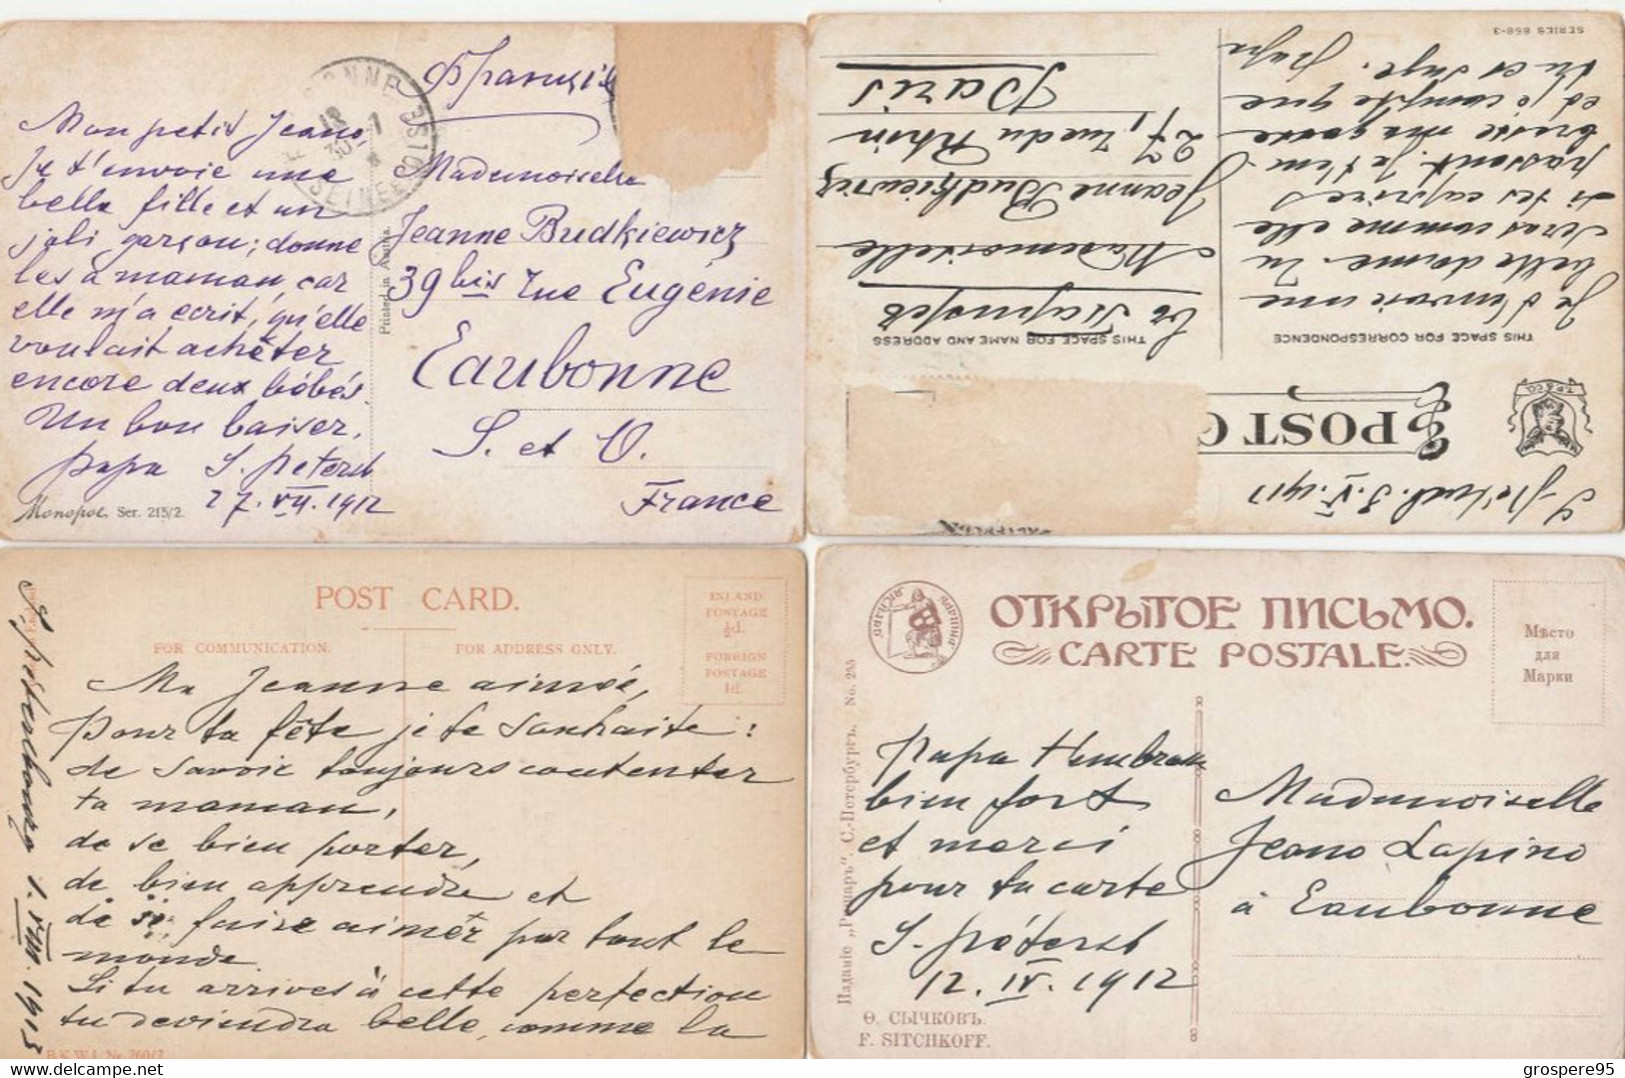 Франція
Mon petit Jeano
Je t'envoie une
belle fille et un
joli garçon; donne
les à maman, car
elle m'a écrit, qu'elle
voulait achêter
encore deux bébés.
Un bon baiser,
papa S. Petersb
27. VII. 1912
Monopol. Ser. 215/2.
Printed in Austria.
Mademoiselle
Jeanne Budkiewicz
39 bis rue Eugénie
Eaubonne
S. et O.
France
S. Petersb. 3. V. 1911
POST C
T.P. & CO.
THIS SPACE FOR CORRESPONDENCE
THIS SPACE FOR NAME AND ADDRESS
Je t'envoie une
belle dame. Tu
seras comme elle
si tes caprices
passent. Je t'em
brasse ma gosse
et je compte que
tu es sage. papa
SERIES 858-3
Mademoiselle
Jeanne Budkiewicz
27, rue du Rhin
Paris
POST CARD.
FOR COMMUNICATION.
FOR ADDRESS ONLY.
INLAND
POSTAGE
½d.
FOREIGN
POSTAGE
1d.
S. Petersbourg 1. VIII. 1913
Ma Jeanne aimée,
Pour ta fête je te souhaite:
de savoir toujours contenter
ta maman,
de se bien porter,
de bien apprendre et
de se faire aimér par tout le
monde.
Si tu arrives à cette perfection
tu deviendra belle, comme la
B.K.W.I. Nr. 260/2
ОТКРЫТОЕ ПИСЬМО.
CARTE POSTALE.
Мѣсто
для
Марки
Изданіе „Ришаръ“ С.-Петербургъ. No. 255
papa t'embrasse
bien fort
et merci
pour ta carte
S. Pétersb
12. IV. 1912
Mademoiselle
Jeano Lapino
à Eaubonne
Ѳ. СЫЧКОВЪ.
F. SITCHKOFF.
grospere95